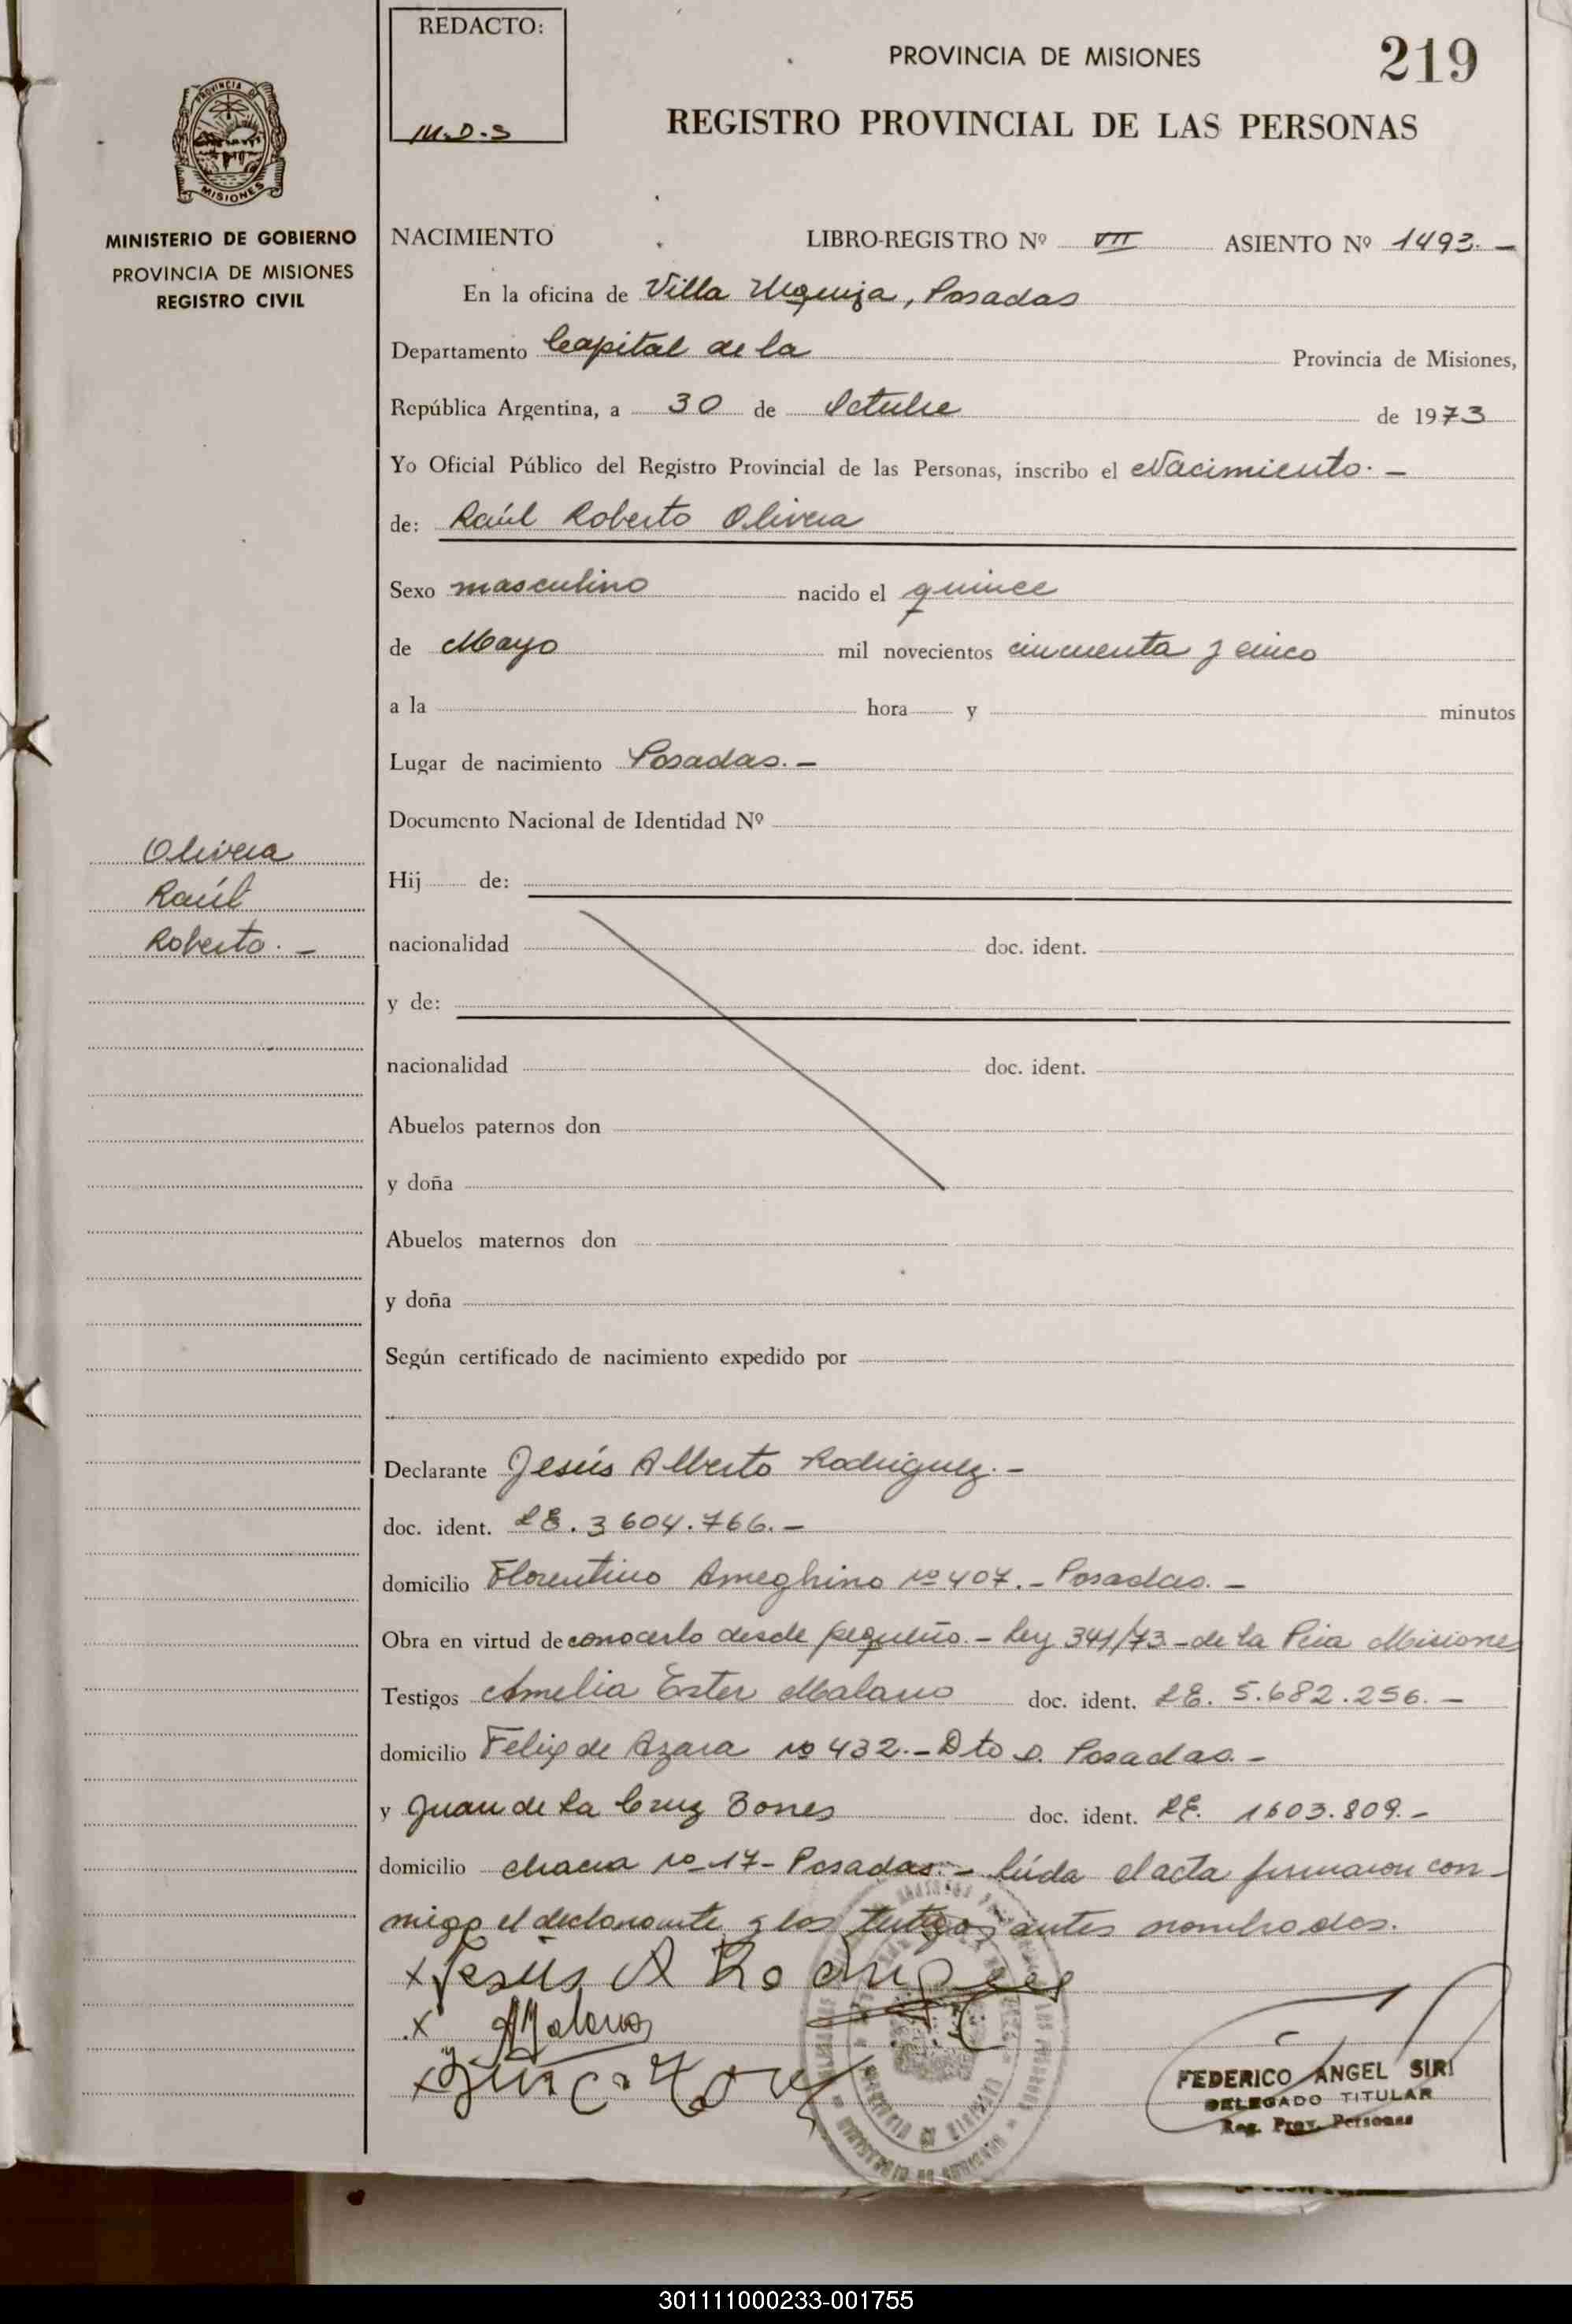 REDACTO:
M.D.S
PROVINCIA DE MISIONES
219
REGISTRO PROVINCIAL DE LAS PERSONAS
PROVINCIA DE
MISIONES
MINISTERIO DE GOBIERNO
PROVINCIA DE MISIONES
REGISTRO CIVIL
NACIMIENTO LIBRO-REGISTRO Nº VII ASIENTO Nº 1493.-
En la oficina de Villa Urquiza, Posadas
Departamento Capital de la Provincia de Misiones,
República Argentina, a 30 de Octubre de 1973
Yo Oficial Público del Registro Provincial de las Personas, inscribo el Nacimiento.-
de: Raúl Roberto Olivera
Sexo masculino nacido el quince
de Mayo mil novecientos cincuenta y cinco
a la hora y minutos
Lugar de nacimiento Posadas.-
Documento Nacional de Identidad Nº
Olivera
Raúl
Roberto.-
Hij de:
nacionalidad doc. ident.
y de:
nacionalidad doc. ident.
Abuelos paternos don
y doña
Abuelos maternos don
y doña
Según certificado de nacimiento expedido por
Declarante Jesús Alberto Rodriguez.-
doc. ident. LE. 3604.766.-
domicilio Florentino Ameghino nº 407.- Posadas.-
Obra en virtud de conocerlo desde pequeño.- Ley 341/73 - de la Pcia Misiones
Testigos Amelia Ester Malano doc. ident. LE. 5.682.256.-
domicilio Felix de Azara nº 432.- Dto Posadas.-
y Juan de la Cruz doc. ident. LE. 1603.809.-
domicilio chacra nº 17- Posadas.- Leída el acta firmaron con-
migo el declarante y los testigos antes nombrados.
x Jesus A Rodriguez
x AMalano
FEDERICO ANGEL SIRI
DELEGADO TITULAR
Reg. Prov. Personas
301111000233-001755